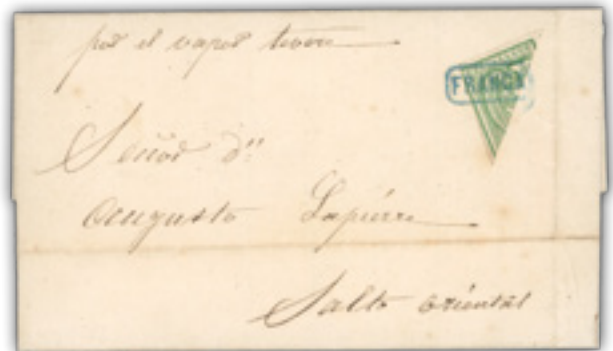 por el vapor
FRANCA
Señor dⁿ
Augusto Lapierre
Salto oriental